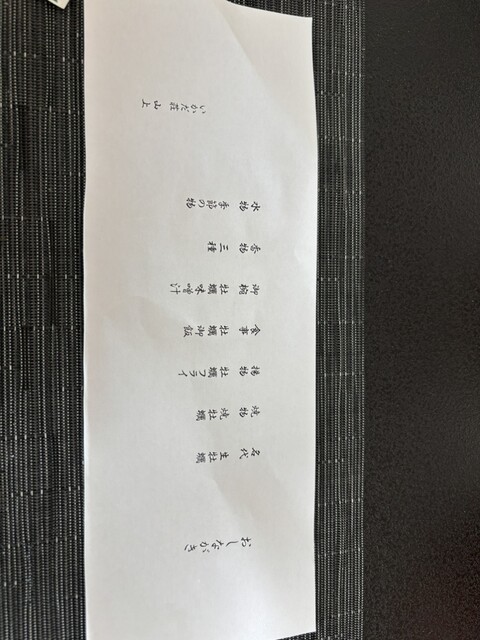 おしながき
名代 生牡蠣
焼物 焼牡蠣
揚物 牡蠣フライ
食事 牡蠣御飯
御椀 牡蠣味噌汁
香物 三種
水物 季節の物
いかだ荘山上